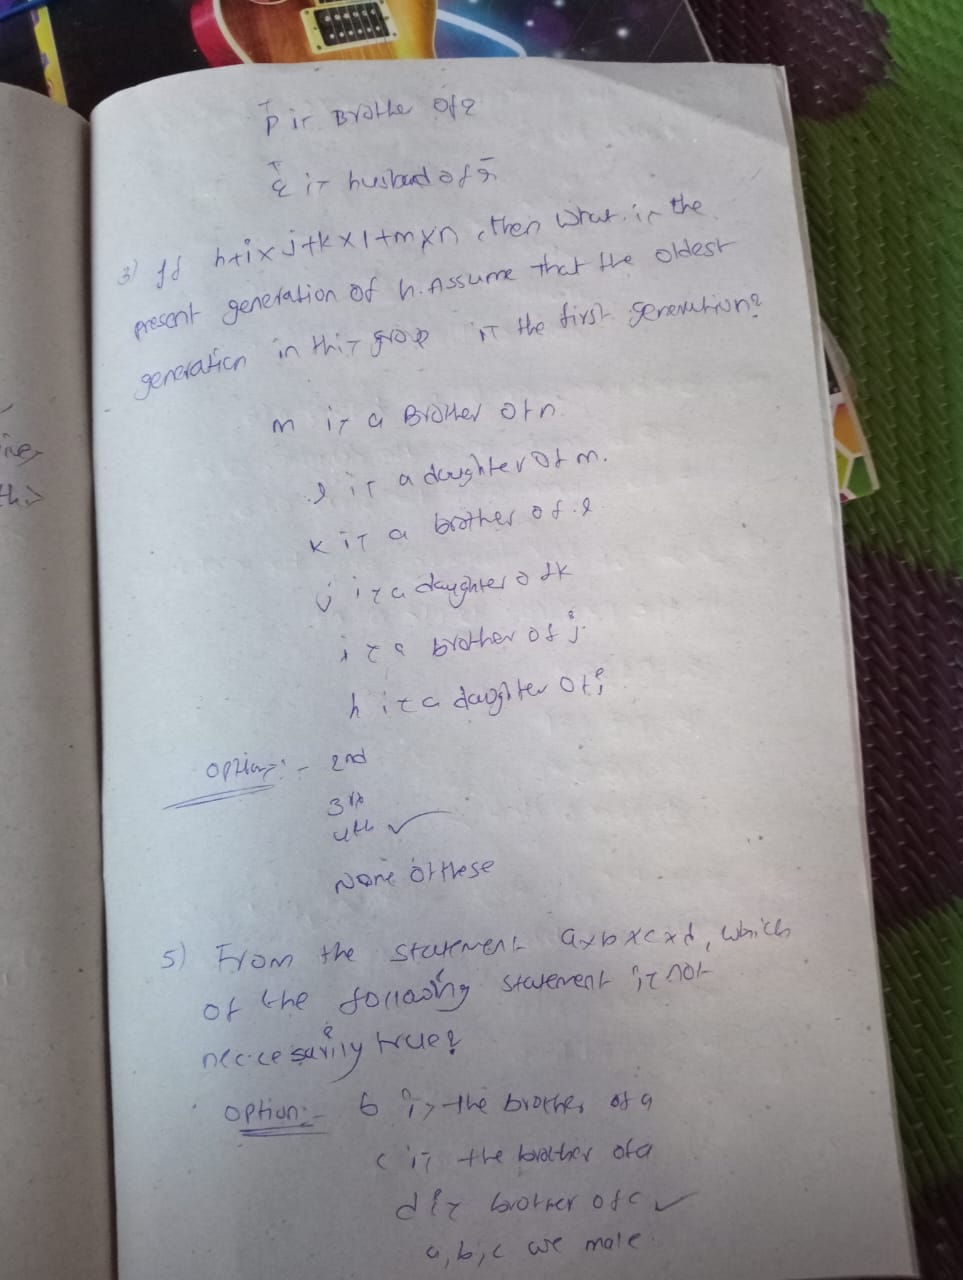 P is Brother of Q
Q is husband of R
3) If h+i×j+k×l+m×n, then What is the
present generation of h. Assume that the oldest
generation in this group is the first generation?
m is a Brother of n
l is a daughter of m.
K is a brother of l
j is a daughter of k
i is a brother of j
h is a daughter of i
Option:- 2nd
3rd
4th ✓
None of these
5) From the statement a×b×c×d, which
of the following statement is not
neccesarily true?
Option:- b is the brother of a
c is the brother of a
d is brother of c ✓
a, b, c are male